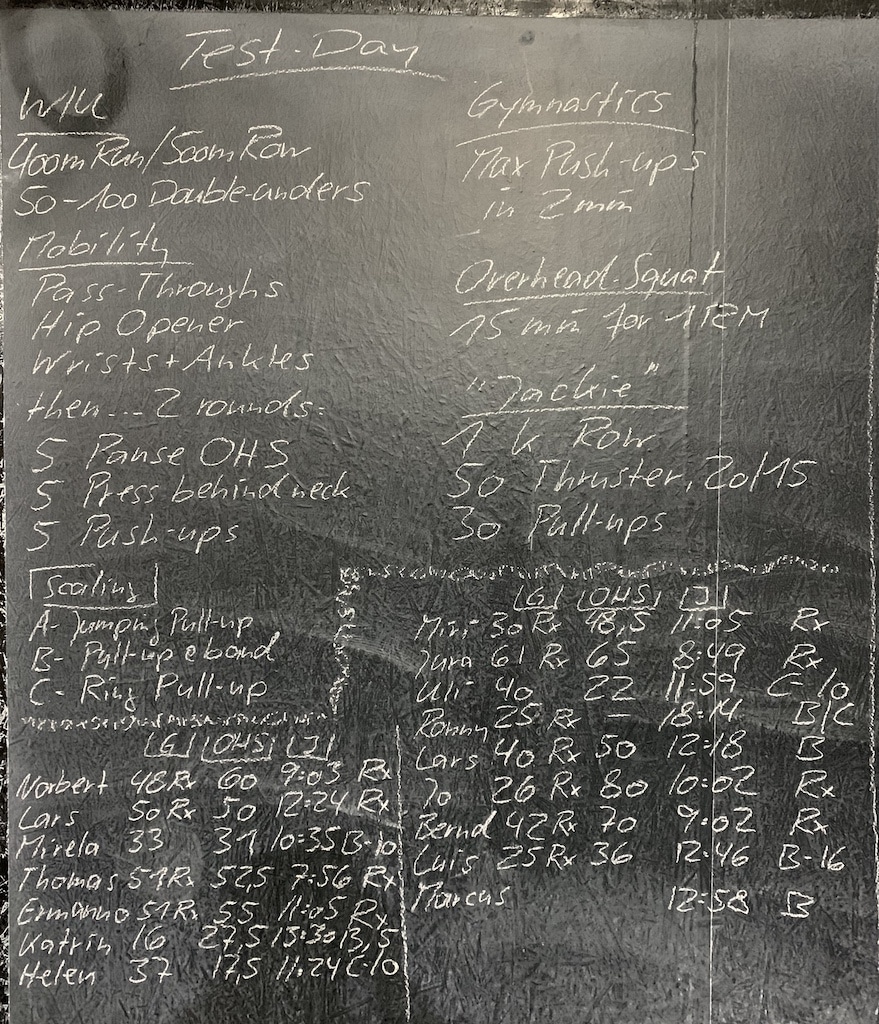 Test-Day
W/U
400m Run/500m Row
50-100 Double-unders
Mobility
Pass-Throughs
Hip Opener
Wrists + Ankles
then... 2 rounds:
5 Pause OHS
5 Press behind neck
5 Push-ups
Gymnastics
Max Push-ups
in 2 min
Overhead-Squat
15 min for 1RM
"Jackie"
1 k Row
50 Thruster, 20/15
30 Pull-ups
Scaling
A- Jumping Pull-up
B- Pull-up e band
C- Ring Pull-up
G OHS J
Norbert 48 Rx 60 9:03 Rx
Lars 50 Rx 50 12:24 Rx
Mirela 33 31 10:35 B-10
Thomas 51 Rx 52,5 7:56 Rx
Ermanno 51 Rx 55 11:05 Rx
Katrin 16 27,5 13:30 B, 5
Helen 37 17,5 11:24 C-10
G OHS J
Miri 30 Rx 48,5 11:05 Rx
Jura 61 Rx 65 8:49 Rx
Uli 40 22 11:59 C-10
Ronny 25 Rx - 18:14 B/C
Lars 40 Rx 50 12:18 B
Jo 26 Rx 80 10:02 Rx
Bernd 42 Rx 70 9:02 Rx
Luis 25 Rx 36 12:46 B-16
Marcus 12:58 B